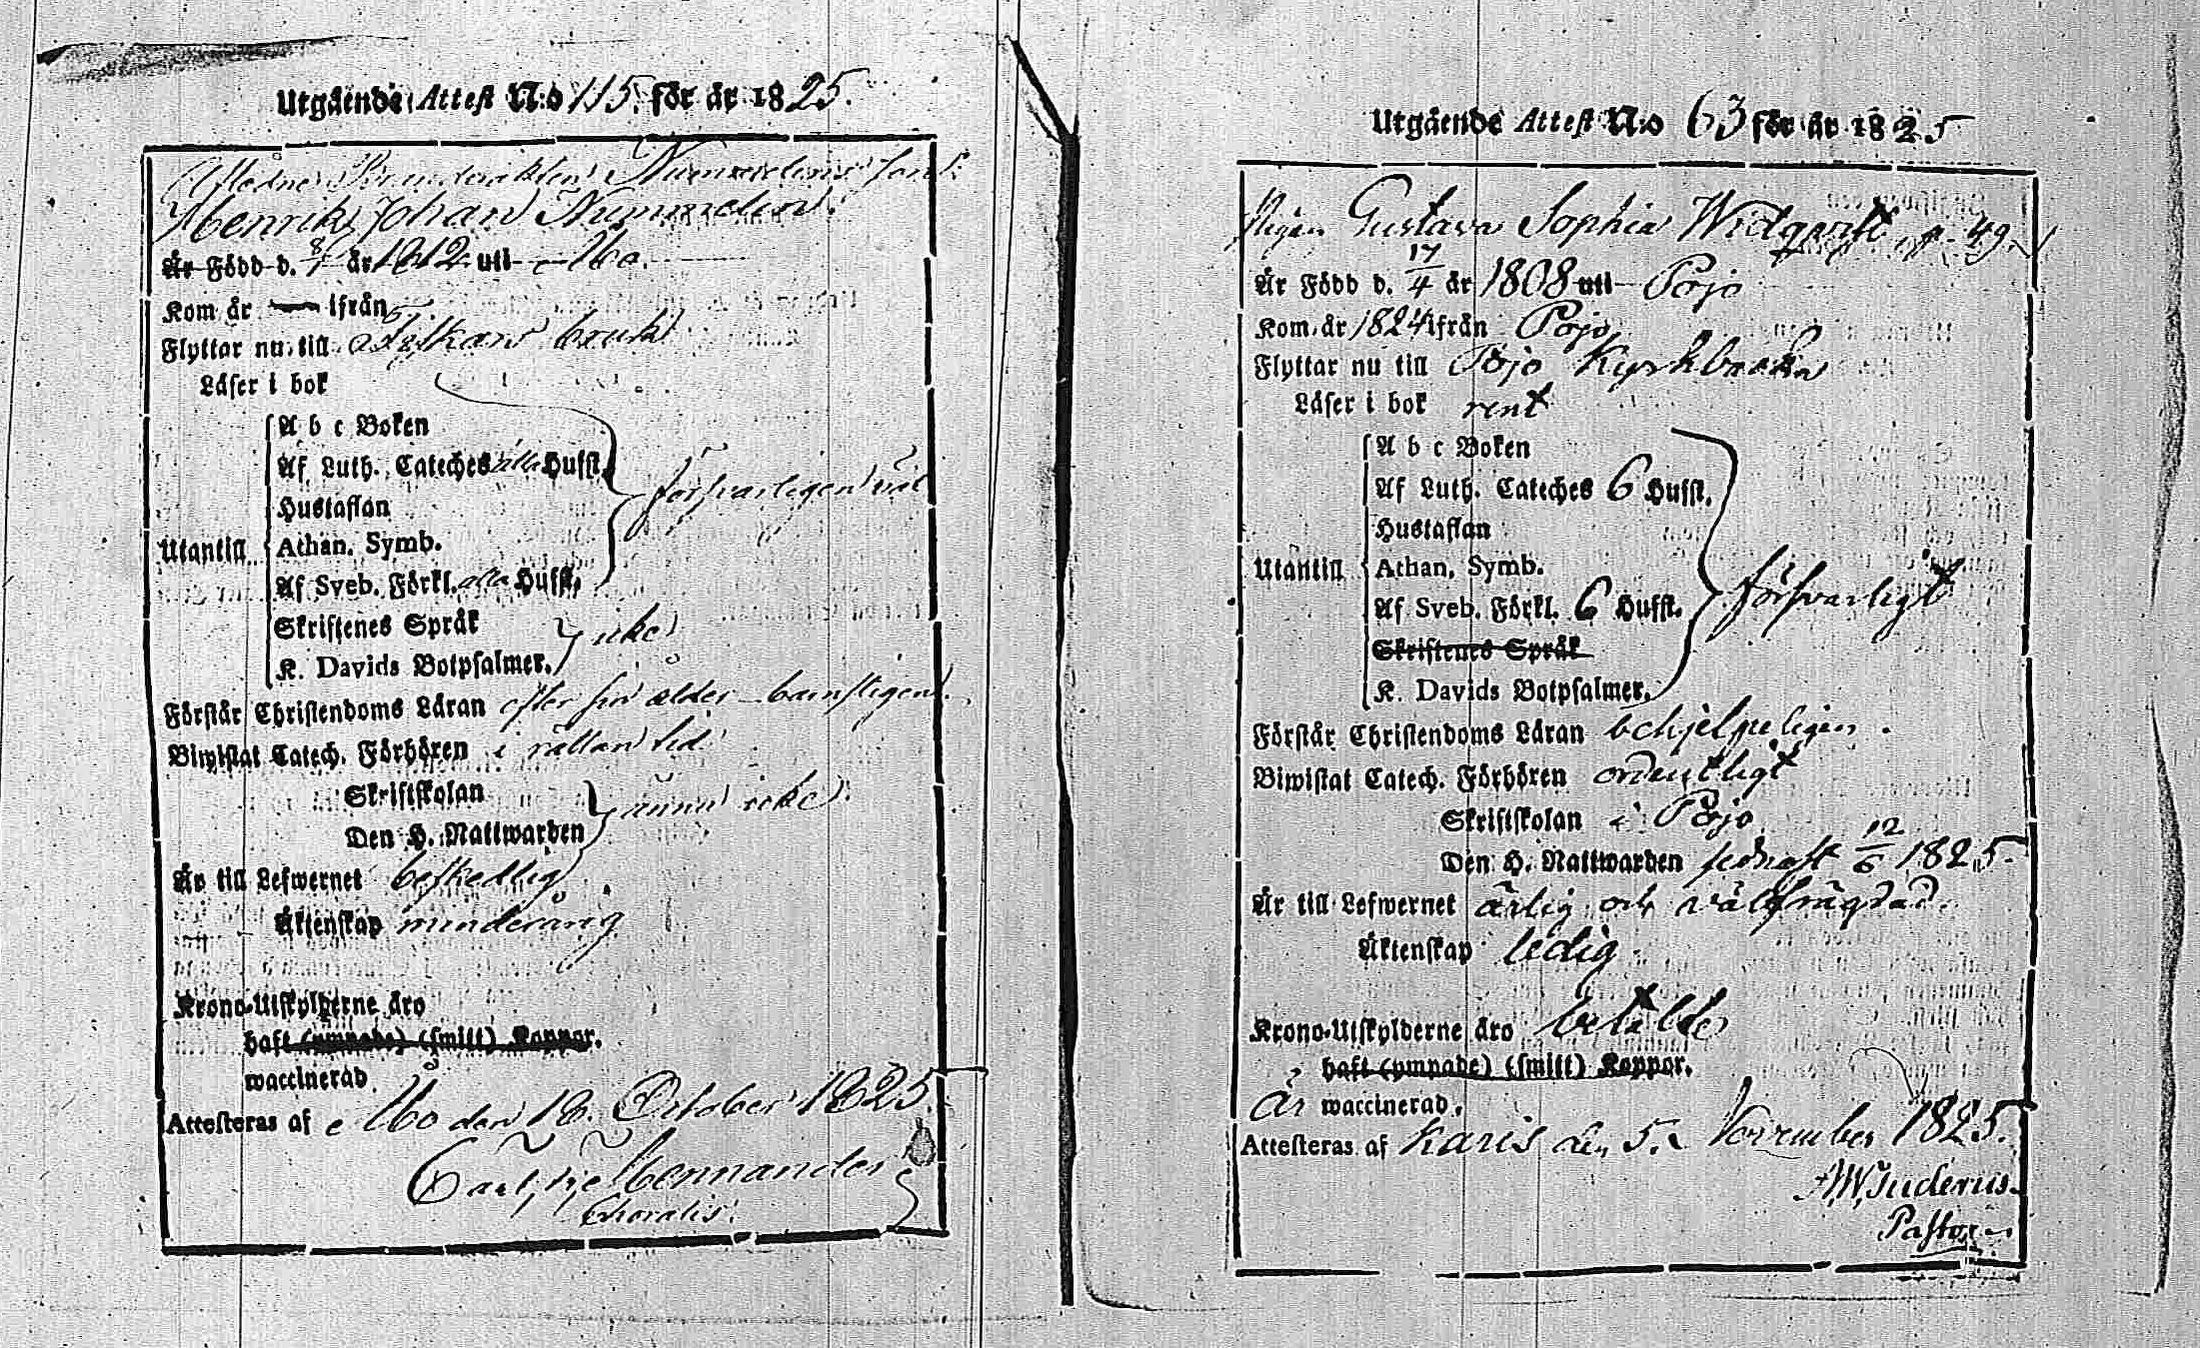 Utgående Attest N:o 115. för år 1825.
Afledne Nummelins son
Henrik Johan Nummelin.
Är Född d. 8/1 år 1812 uti Åbo.
Kom år — ifrån
Flyttar nu till Bruk
Läser i bok
A b c Boken
Af Luth. Cateches alla Hufst.
Hustaflan
Utantill
Athan. Symb.
försvarligen väl
Af Sveb. Förkl. alla Hufst.
Skriftenes Språk
K. Davids Botpsalmer.
icke
Förstår Christendoms Läran efter sin ålder
Biwistat Catech. Förhören i rättan tid
Skriftskolan
Den H. Nattwarden
ännu icke.
Är till Lefwernet beskedlig
Äktenskap minderårig
Krono-Utskylderne äro
haft (ympade) (smitt) Koppor.
waccinerad
Attesteras af Åbo den 18. October 1825.
Carl Mennander
Utgående Attest N:o 63 för år 1825
Pigan Gustava Sophia Widqvist p. 49.
Är Född d. 17/4 år 1808 uti Pojo
Kom år 1824 ifrån Pojo
Flyttar nu till Pojo Kyrkbacka
Läser i bok rent
A b c Boken
Af Luth. Cateches 6 Hufst.
Hustaflan
Utantill
Athan. Symb.
försvarligt
Af Sveb. Förkl. 6 Hufst.
Skriftenes Språk
K. Davids Botpsalmer.
Förstår Christendoms Läran behjelpeligen.
Biwistat Catech. Förhören ordentligt
Skriftskolan i Pojo
Den H. Nattwarden sednast 12/6 1825.
Är till Lefwernet ärlig och välfrägdad.
Äktenskap ledig
Krono-Utskylderne äro betalde
haft (ympade) (smitt) Koppor.
Är waccinerad.
Attesteras af Karis den 5. November 1825.
Pastor